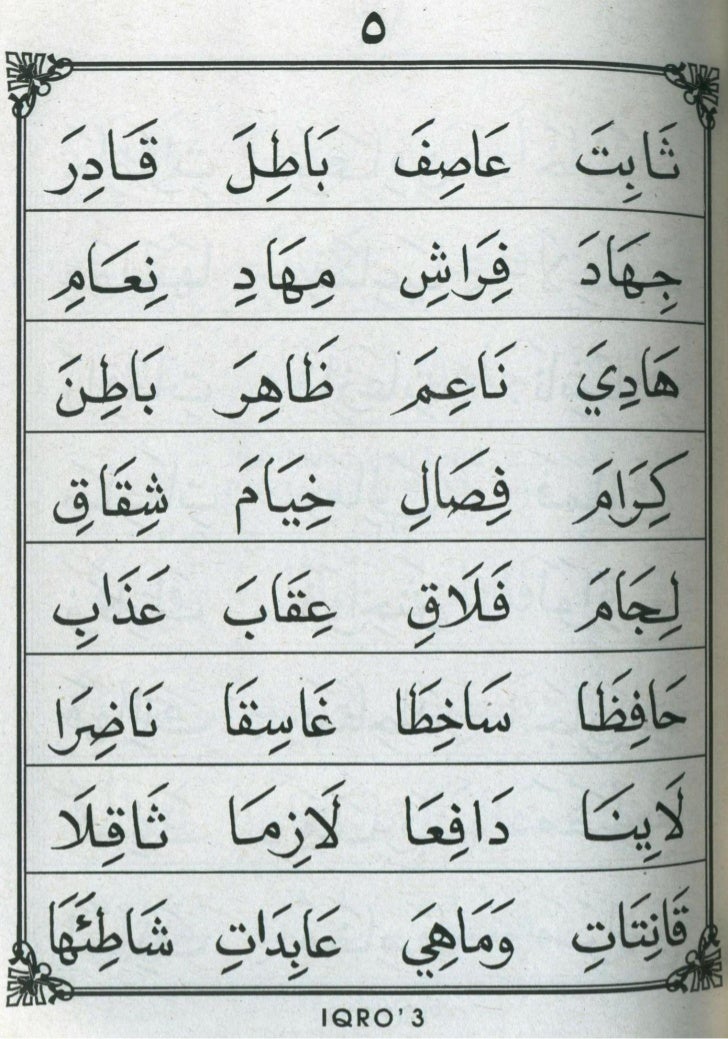 ٥
ثَابِتَ عَاصِفَ بَاطِلَ قَادِرَ
جِهَادَ فِرَاشِ مِهَادِ نِعَامِ
هَادِيَ نَاعِمَ ظَاهِرَ بَاطِنَ
كِرَامَ فِصَالِ خِيَامَ شِقَاقِ
لِجَامَ فَلَاقِ عِقَابَ عَذَابِ
حَافِظَا سَاخِطَا غَاسِقَا نَاضِرَا
لَايِنَا دَافِعَا لَازِمَا ثَاقِلَا
قَانِتَاتِ وَمَاهِيَ عَابِدَاتِ شَاطِئَهَا
IQRO' 3